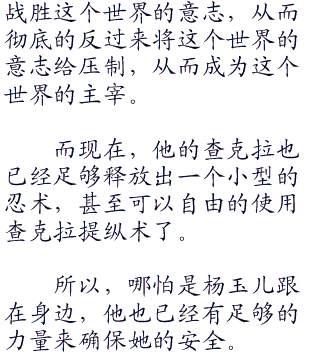 战胜这个世界的意志，从而
彻底的反过来将这个世界的
意志给压制，从而成为这个
世界的主宰。
而现在，他的查克拉也
已经足够释放出一个小型的
忍术，甚至可以自由的使用
查克拉提纵术了。
所以，哪怕是杨玉儿跟
在身边，他也已经有足够的
力量来确保她的安全。